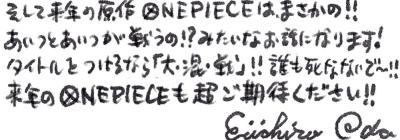 そして来年の原作ONEPIECEは、まさかの!!
あいつとあいつが戦うの!?みたいなお話になります!
タイトルをつけるなら「大・混・戦」!!誰も死なないで〜!!
来年のONEPIECEも超ご期待ください!!
Eiichiro Oda